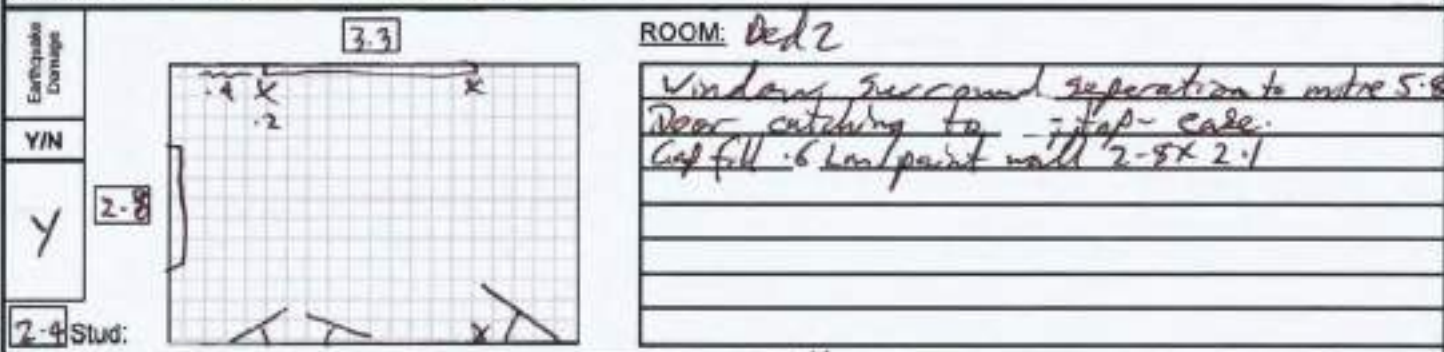 Earthquake
Damage
Y/N
Y
3.3
.4 x x
.2
2-8
x
2-4 Stud:
ROOM: Bed 2
Window surround seperation to mitre 5.8
Door catching to top - ease.
Gap fill .6 Lm/paint wall 2-8x 2.1